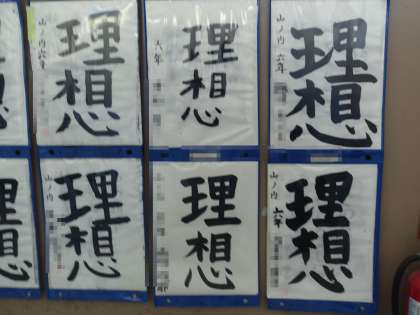 理想
山ノ内 六年
理想
六年
理想
山ノ内 六年
理想
山ノ内
理想
理想
山ノ内 六年